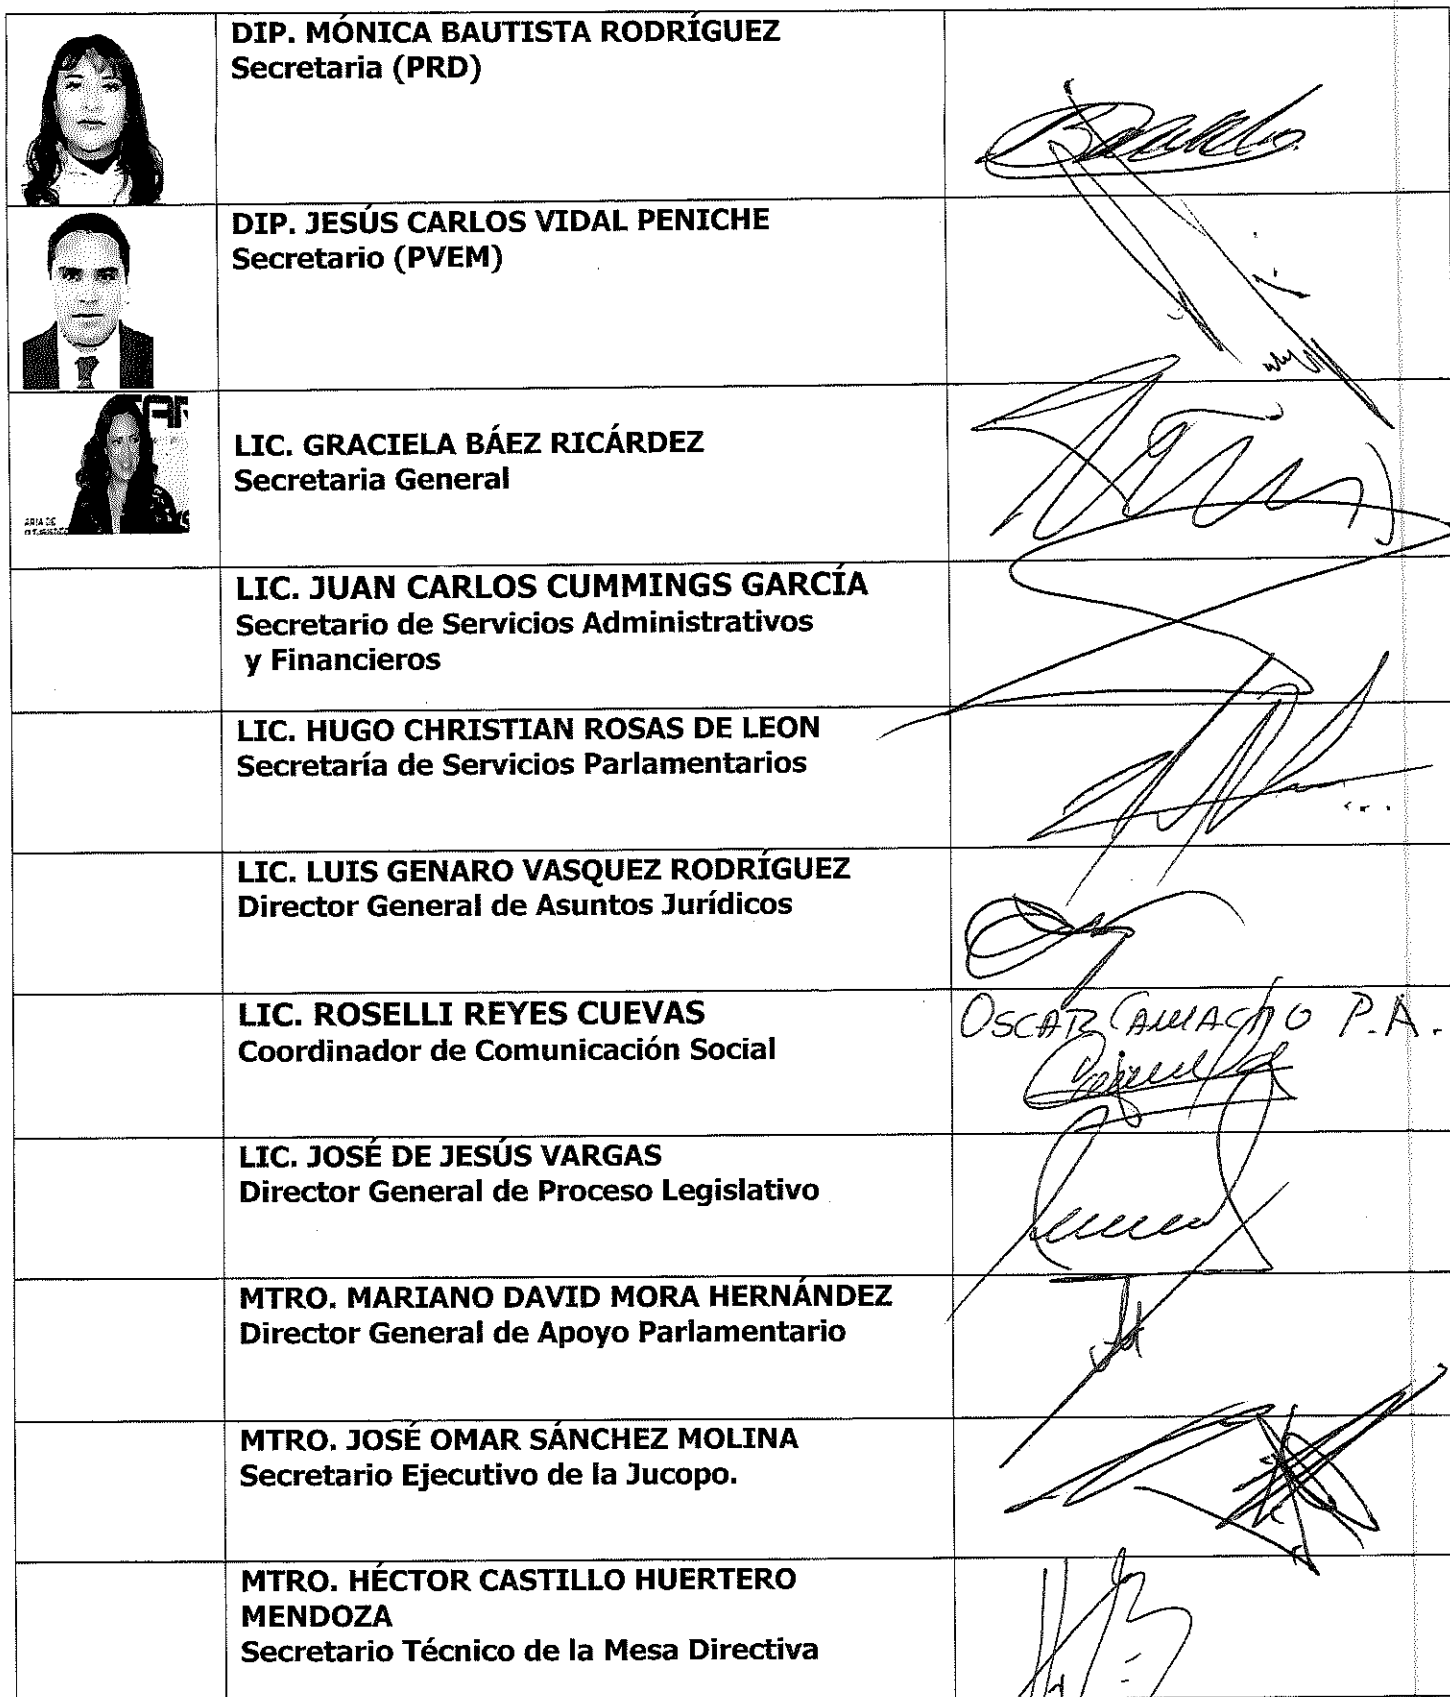 DIP. MÓNICA BAUTISTA RODRÍGUEZ
Secretaria (PRD)
DIP. JESÚS CARLOS VIDAL PENICHE
Secretario (PVEM)
LIC. GRACIELA BÁEZ RICÁRDEZ
Secretaria General
LIC. JUAN CARLOS CUMMINGS GARCÍA
Secretario de Servicios Administrativos
y Financieros
LIC. HUGO CHRISTIAN ROSAS DE LEON
Secretaría de Servicios Parlamentarios
LIC. LUIS GENARO VASQUEZ RODRÍGUEZ
Director General de Asuntos Jurídicos
LIC. ROSELLI REYES CUEVAS
Coordinador de Comunicación Social
OSCAR CAMACHO P.A.
LIC. JOSÉ DE JESÚS VARGAS
Director General de Proceso Legislativo
MTRO. MARIANO DAVID MORA HERNÁNDEZ
Director General de Apoyo Parlamentario
MTRO. JOSÉ OMAR SÁNCHEZ MOLINA
Secretario Ejecutivo de la Jucopo.
MTRO. HÉCTOR CASTILLO HUERTERO
MENDOZA
Secretario Técnico de la Mesa Directiva